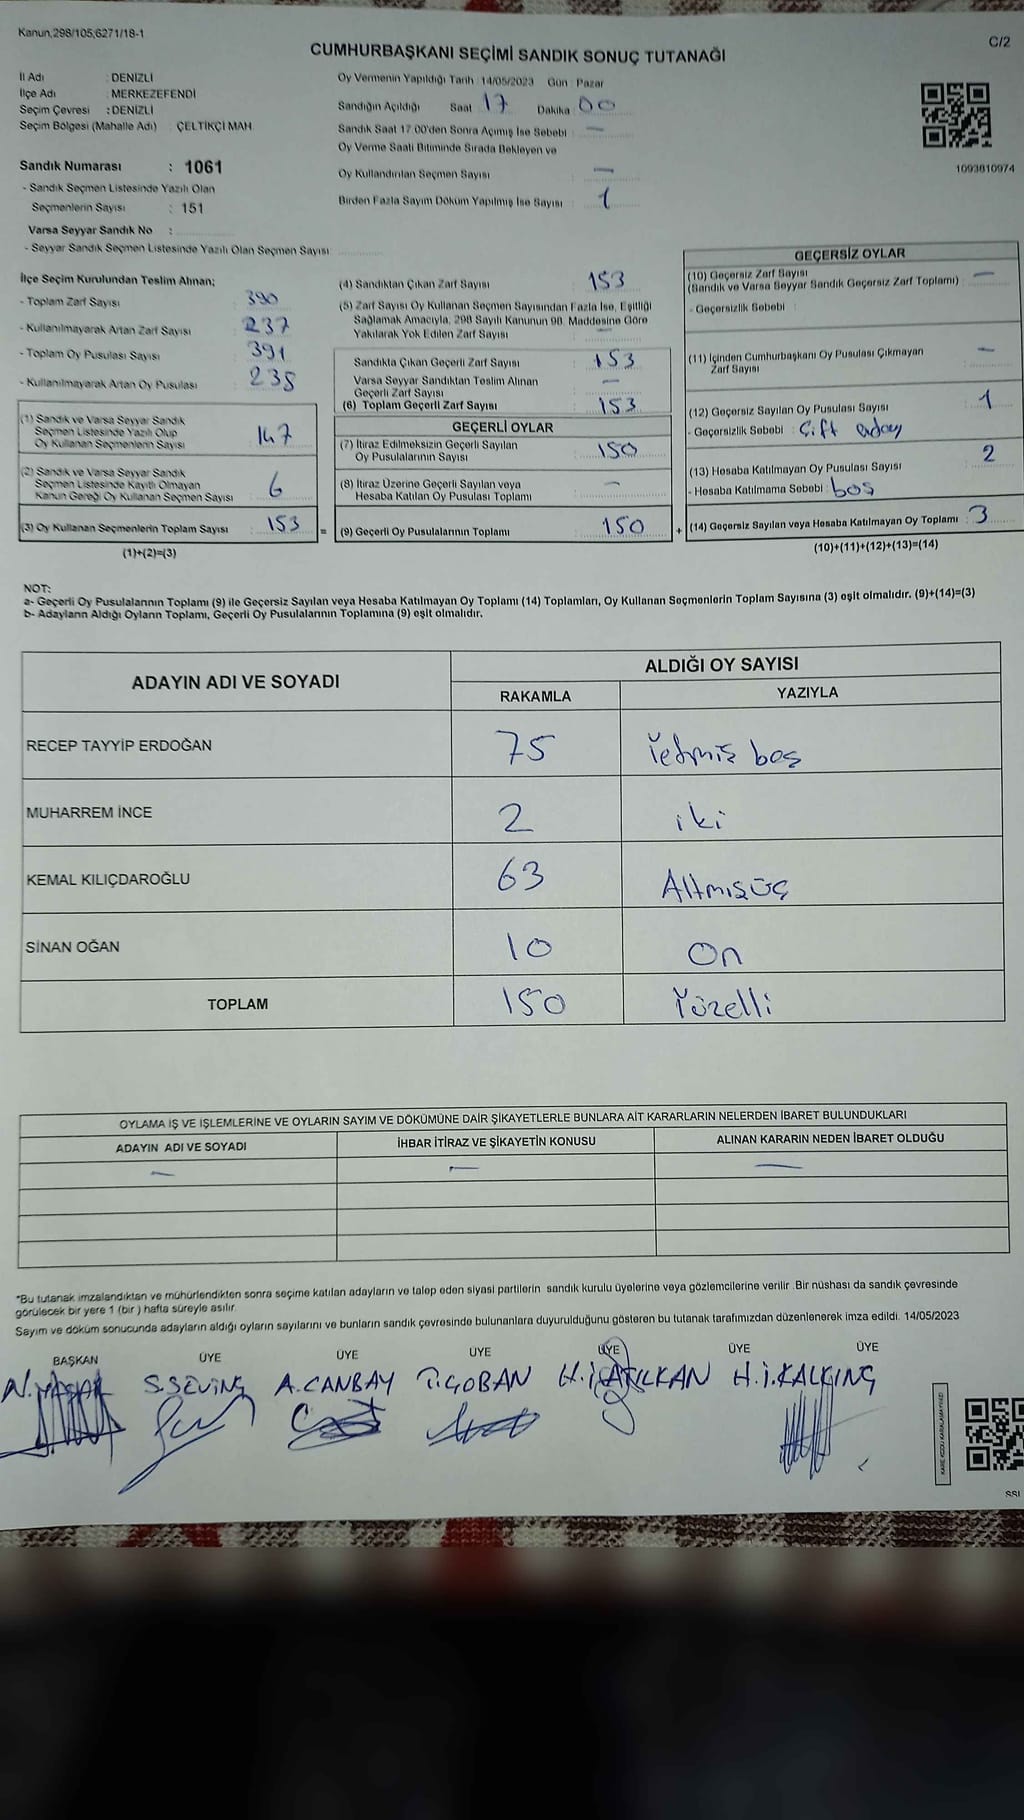 Kanun,298/105;6271/18-1
C/2
CUMHURBAŞKANI SEÇİMİ SANDIK SONUÇ TUTANAĞI
İl Adı : DENİZLİ
İlçe Adı : MERKEZEFENDİ
Seçim Çevresi : DENİZLİ
Seçim Bölgesi (Mahalle Adı) : ÇELTİKÇİ MAH
Sandık Numarası : 1061
- Sandık Seçmen Listesinde Yazılı Olan
Seçmenlerin Sayısı : 151
Varsa Seyyar Sandık No :
- Seyyar Sandık Seçmen Listesinde Yazılı Olan Seçmen Sayısı
Oy Vermenin Yapıldığı Tarih : 14/05/2023 Gün : Pazar
Sandığın Açıldığı Saat 17 Dakika 00
Sandık Saat 17.00'den Sonra Açımış İse Sebebi : —
Oy Verme Saati Bitiminde Sırada Bekleyen ve
Oy Kullandırılan Seçmen Sayısı : —
Birden Fazla Sayım Döküm Yapılmış İse Sayısı : 1
1093810974
İlçe Seçim Kurulundan Teslim Alınan;
- Toplam Zarf Sayısı : 390
- Kullanılmayarak Artan Zarf Sayısı : 237
- Toplam Oy Pusulası Sayısı : 391
- Kullanılmayarak Artan Oy Pusulası : 238
(1) Sandık ve Varsa Seyyar Sandık
Seçmen Listesinde Yazılı Olup
Oy Kullanan Seçmenlerin Sayısı : 147
(2) Sandık ve Varsa Seyyar Sandık
Seçmen Listesinde Kayıtlı Olmayan
Kanun Gereği Oy Kullanan Seçmen Sayısı : 6
(3) Oy Kullanan Seçmenlerin Toplam Sayısı : 153 =
(1)+(2)=(3)
(4) Sandıktan Çıkan Zarf Sayısı : 153
(5) Zarf Sayısı Oy Kullanan Seçmen Sayısından Fazla İse, Eşitliği
Sağlamak Amacıyla, 298 Sayılı Kanunun 98. Maddesine Göre
Yakılarak Yok Edilen Zarf Sayısı : —
Sandıkta Çıkan Geçerli Zarf Sayısı : 153
Varsa Seyyar Sandıktan Teslim Alınan
Geçerli Zarf Sayısı : —
(6) Toplam Geçerli Zarf Sayısı : 153
GEÇERLİ OYLAR
(7) İtiraz Edilmeksizin Geçerli Sayılan
Oy Pusulalarının Sayısı : 150
(8) İtiraz Üzerine Geçerli Sayılan veya
Hesaba Katılan Oy Pusulası Toplamı : —
(9) Geçerli Oy Pusulalarının Toplamı : 150 +
GEÇERSİZ OYLAR
(10) Geçersiz Zarf Sayısı
(Sandık ve Varsa Seyyar Sandık Geçersiz Zarf Toplamı) : —
- Geçersizlik Sebebi :
(11) İçinden Cumhurbaşkanı Oy Pusulası Çıkmayan
Zarf Sayısı : —
(12) Geçersiz Sayılan Oy Pusulası Sayısı : 1
- Geçersizlik Sebebi : Çift aday
(13) Hesaba Katılmayan Oy Pusulası Sayısı : 2
- Hesaba Katılmama Sebebi : boş
(14) Geçersiz Sayılan veya Hesaba Katılmayan Oy Toplamı : 3
(10)+(11)+(12)+(13)=(14)
NOT:
a- Geçerli Oy Pusulalarının Toplamı (9) ile Geçersiz Sayılan veya Hesaba Katılmayan Oy Toplamı (14) Toplamları, Oy Kullanan Seçmenlerin Toplam Sayısına (3) eşit olmalıdır. (9)+(14)=(3)
b- Adayların Aldığı Oyların Toplamı, Geçerli Oy Pusulalarının Toplamına (9) eşit olmalıdır.
ADAYIN ADI VE SOYADI
ALDIĞI OY SAYISI
RAKAMLA YAZIYLA
RECEP TAYYİP ERDOĞAN 75 Yetmiş beş
MUHARREM İNCE 2 iki
KEMAL KILIÇDAROĞLU 63 Altmışüç
SİNAN OĞAN 10 On
TOPLAM 150 Yüzelli
OYLAMA İŞ VE İŞLEMLERİNE VE OYLARIN SAYIM VE DÖKÜMÜNE DAİR ŞİKAYETLERLE BUNLARA AİT KARARLARIN NELERDEN İBARET BULUNDUKLARI
ADAYIN ADI VE SOYADI İHBAR İTİRAZ VE ŞİKAYETİN KONUSU ALINAN KARARIN NEDEN İBARET OLDUĞU
— — —
*Bu tutanak imzalandıktan ve mühürlendikten sonra seçime katılan adayların ve talep eden siyasi partilerin sandık kurulu üyelerine veya gözlemcilerine verilir. Bir nüshası da sandık çevresinde
görülecek bir yere 1 (bir ) hafta süreyle asılır.
Sayım ve döküm sonucunda adayların aldığı oyların sayılarını ve bunların sandık çevresinde bulunanlara duyurulduğunu gösteren bu tutanak tarafımızdan düzenlenerek imza edildi. 14/05/2023
BAŞKAN ÜYE ÜYE ÜYE ÜYE ÜYE ÜYE
N.YAŞAR S.SEVİNÇ A.CANBAY T.ÇOBAN H.İ. H.İ.KALKINÇ
SSI